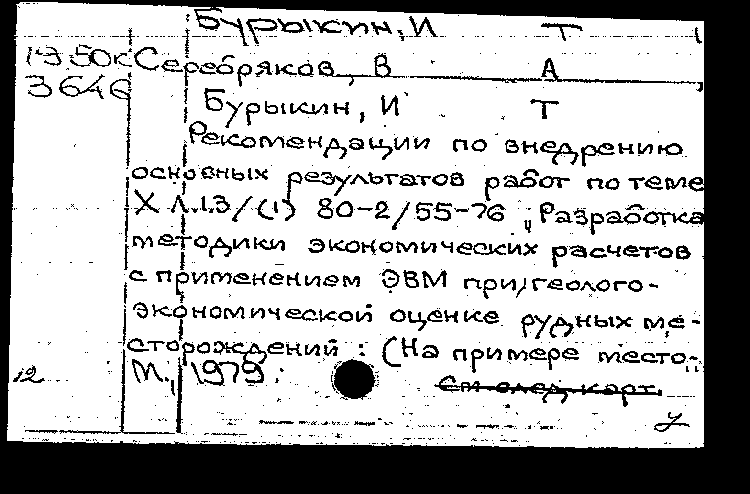 Бурыкин, И Т
1350к Серебряков, В А
3646
Бурыкин, И Т
Рекомендации по внедрению
основных результатов работ по теме
X Л.1.3/(1) 80-2/55-76 „Разработка
методики экономических расчетов
с применением ЭВМ при геолого-
экономической оценке рудных ме-
сторождений : (На примере место-
12 М., 1979.
См след. карт.